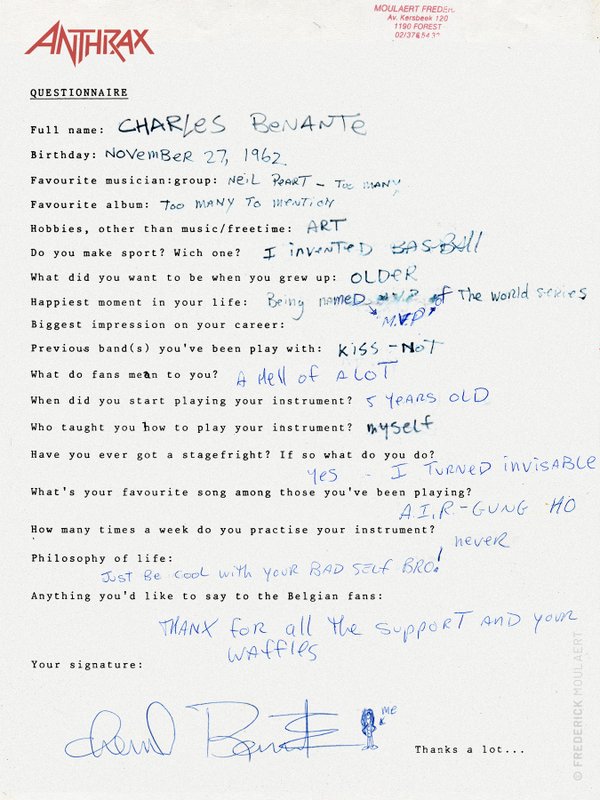 ANTHRAX
MOULAERT FREDER.
Av. Kersbeek 120
1190 FOREST
02/376543
QUESTIONNAIRE
Full name: CHARLES BENANTE
Birthday: NOVEMBER 27, 1962
Favourite musician:group: NEIL PEART - TOO MANY
Favourite album: TOO MANY TO MENTION
Hobbies, other than music/freetime: ART
Do you make sport? Wich one? I invented BASBAll
What did you want to be when you grew up: OLDER
Happiest moment in your life: Being named M.V.P of The world series
M.V.P
Biggest impression on your career:
Previous band(s) you've been play with: KISS - NOT
What do fans mean to you? A Hell of A LOT
When did you start playing your instrument? 5 YEARS OLD
Who taught you how to play your instrument? myself
Have you ever got a stagefright? If so what do you do?
Yes - I TURNED INVISABLE
What's your favourite song among those you've been playing?
A.I.R. - GUNG HO
How many times a week do you practise your instrument?
never
Philosophy of life:
JUST Be COOL with YOUR BAD SELF BRO!
Anything you'd like to say to the Belgian fans:
THANX for all the support AND your
waffles
Your signature:
me
Thanks a lot...
© FREDERICK MOULAERT